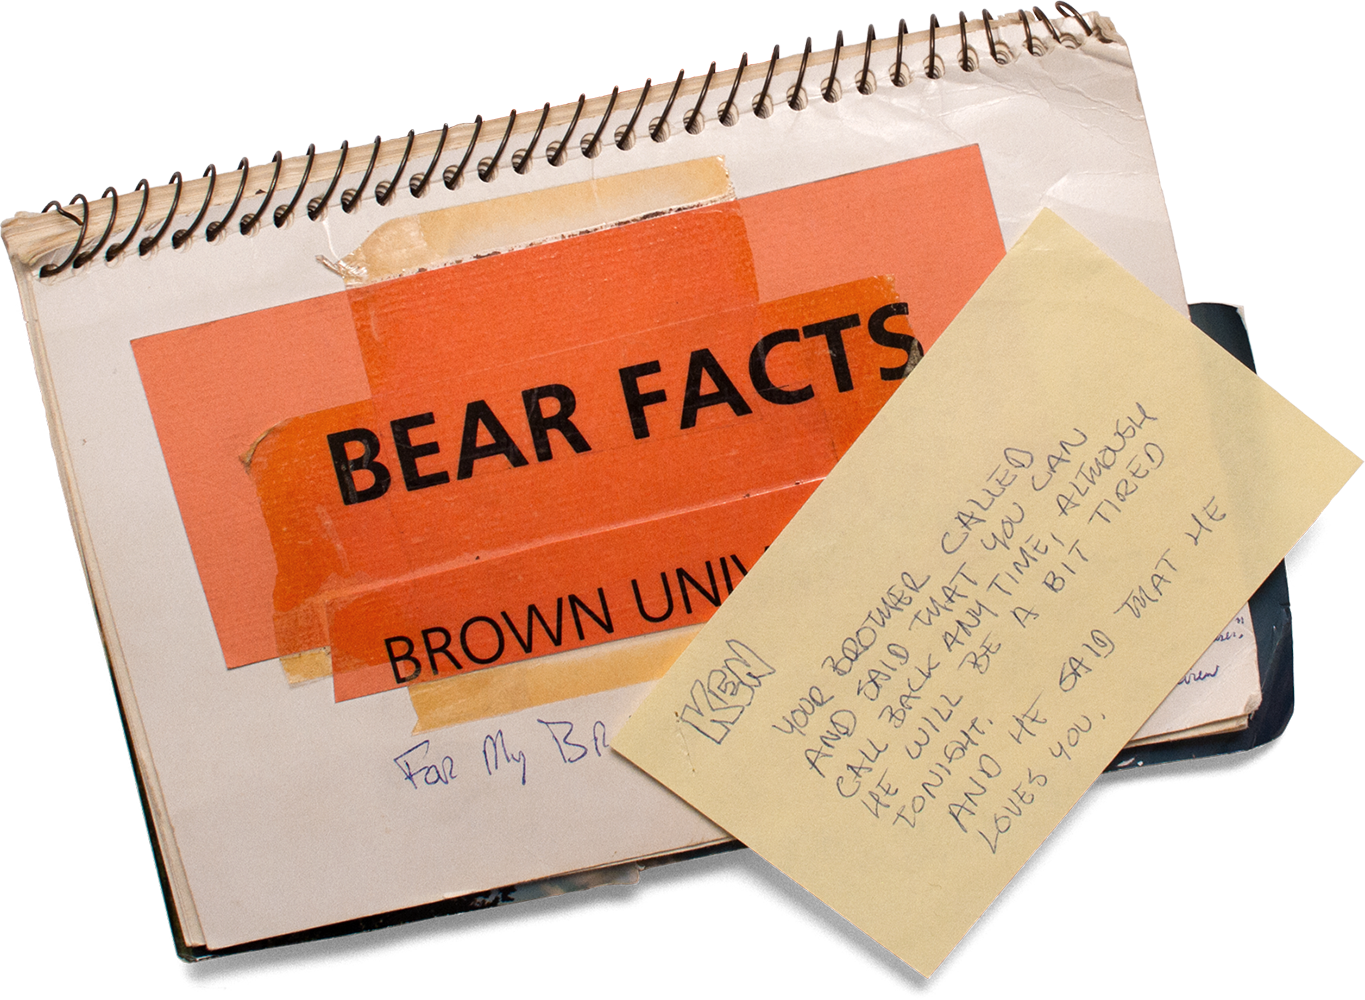 BEAR FACTS
BROWN UNIV
For My BR
KEN
YOUR BROTHER CALLED
AND SAID THAT YOU CAN
CALL BACK ANYTIME, ALTHOUGH
HE WILL BE A BIT TIRED
TONIGHT.
AND HE SAID THAT HE
LOVES YOU.